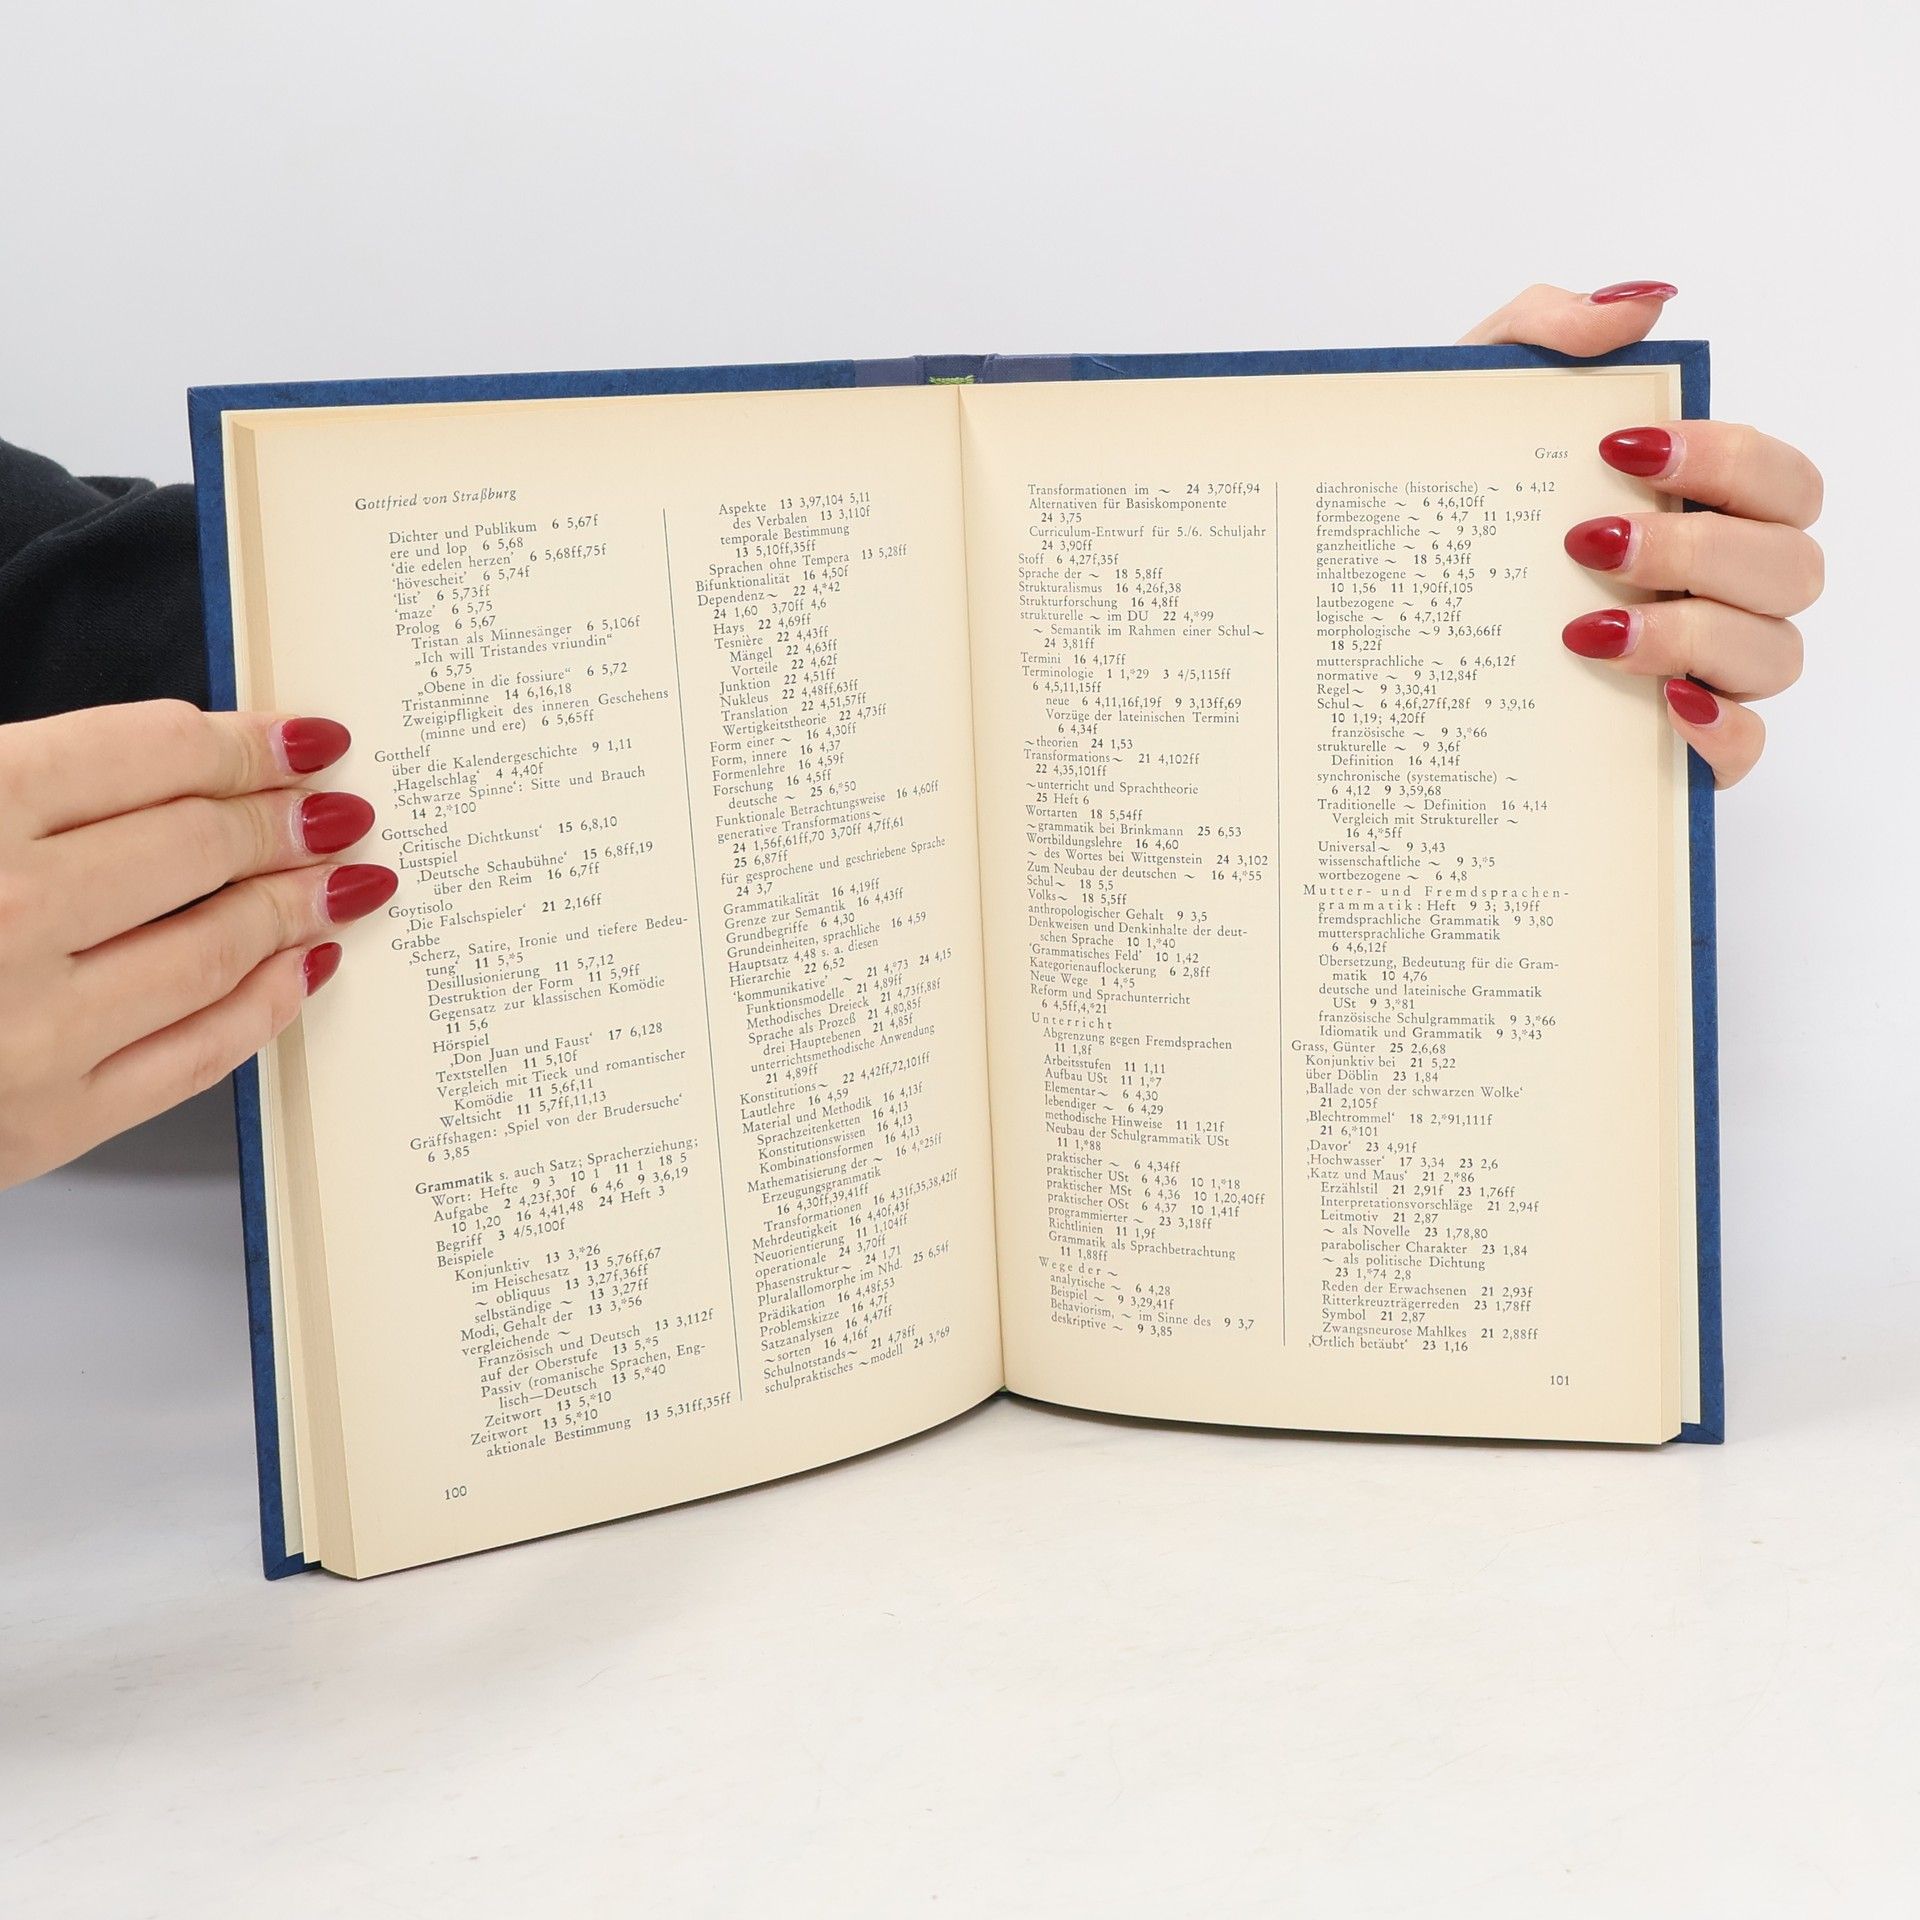 Gottfried von Straßburg
Dichter und Publikum 6 5,67f
ere und lop 6 5,68
‘die edelen herzen’ 6 5,68ff,75f
‘hövescheit’ 6 5,74f
‘list’ 6 5,73ff
‘maze’ 6 5,75
Prolog 6 5,67
Tristan als Minnesänger 6 5,106f
„Ich will Tristandes vriundin“
6 5,75
„Obene in die fossiure“ 6 5,72
Tristanminne 14 6,16,18
Zweigipfligkeit des inneren Geschehens
(minne und ere) 6 5,65ff
Gotthelf
über die Kalendergeschichte 9 1,11
‚Hagelschlag‘ 4 4,40f
‚Schwarze Spinne‘: Sitte und Brauch
14 2,*100
Gottsched
‚Critische Dichtkunst‘ 15 6,8,10
Lustspiel
‚Deutsche Schaubühne‘ 15 6,8ff,19
über den Reim 16 6,7ff
Goytisolo
‚Die Falschspieler‘ 21 2,16ff
Grabbe
‚Scherz, Satire, Ironie und tiefere Bedeu-
tung‘ 11 5,*5
Desillusionierung 11 5,7,12
Destruktion der Form 11 5,9ff
Gegensatz zur klassischen Komödie
11 5,6
Hörspiel
‚Don Juan und Faust‘ 17 6,128
Textstellen 11 5,10f
Vergleich mit Tieck und romantischer
Komödie 11 5,6f,11
Weltsicht 11 5,7ff,11,13
Gräffshagen: ‚Spiel von der Brudersuche‘
6 3,85
Grammatik s. auch Satz; Spracherziehung;
Wort: Hefte 9 3 10 1 11 1 18 5
Aufgabe 2 4,23f,30f 6 4,6 9 3,6,19
10 1,20 16 4,41,48 24 Heft 3
Begriff 3 4/5,100f
Beispiele
Konjunktiv 13 3,*26
im Heischesatz 13 5,76ff,67
~ obliquus 13 3,27f,36ff
selbständige ~ 13 3,27ff
Modi, Gehalt der 13 3,*56
vergleichende ~
Französisch und Deutsch 13 3,112f
auf der Oberstufe 13 5,*5
Passiv (romanische Sprachen, Eng-
lisch—Deutsch 13 5,*40
Zeitwort 13 5,*10
Zeitwort 13 5,*10
aktionale Bestimmung 13 5,31ff,35ff
100
Aspekte 13 3,97,104 5,11
des Verbalen 13 3,110f
temporale Bestimmung
13 5,10ff,35ff
Sprachen ohne Tempera 13 5,28ff
Bifunktionalität 16 4,50f
Dependenz~ 22 4,*42
24 1,60 3,70ff 4,6
Hays 22 4,69ff
Tesnière 22 4,43ff
Mängel 22 4,63ff
Vorteile 22 4,62f
Junktion 22 4,51ff
Nukleus 22 4,48ff,63ff
Translation 22 4,51,57ff
Wertigkeitstheorie 22 4,73ff
Form einer ~ 16 4,30ff
Form, innere 16 4,37
Formenlehre 16 4,59f
Forschung 16 4,5ff
deutsche ~ 25 6,*50
Funktionale Betrachtungsweise 16 4,60ff
generative Transformations~
24 1,56f,61ff,70 3,70ff 4,7ff,61
25 6,87ff
für gesprochene und geschriebene Sprache
24 3,7
Grammatikalität 16 4,19ff
Grenze zur Semantik 16 4,43ff
Grundbegriffe 6 4,30
Grundeinheiten, sprachliche 16 4,59
Hauptsatz 4,48 s. a. diesen
Hierarchie 22 6,52
‘kommunikative’ ~ 21 4,*73 24 4,15
Funktionsmodelle 21 4,89ff
Methodisches Dreieck 21 4,73ff,88f
Sprache als Prozeß 21 4,80,85f
drei Hauptebenen 21 4,85f
unterrichtsmethodische Anwendung
21 4,89ff
Konstitutions~ 22 4,42ff,72,101ff
Lautlehre 16 4,59
Material und Methodik 16 4,13f
Sprachzeitenketten 16 4,13
Konstitutionswissen 16 4,13
Kombinationsformen 16 4,13
Mathematisierung der ~ 16 4,*25ff
Erzeugungsgrammatik
16 4,30ff,39,41ff
Transformationen 16 4,31f,35,38,42ff
Mehrdeutigkeit 16 4,40f,43f
Neuorientierung 11 1,104ff
operationale 24 3,70ff
Phasenstruktur~ 24 1,71
Pluralallomorphe im Nhd. 25 6,54f
Prädikation 16 4,48f,53
Problemskizze 16 4,7f
Satzanalysen 16 4,47ff
~sorten 16 4,16f
Schulnotstands~ 21 4,78ff
schulpraktisches ~modell 24 3,*69
Grass
Transformationen im ~ 24 3,70ff,94
Alternativen für Basiskomponente
24 3,75
Curriculum-Entwurf für 5./6. Schuljahr
24 3,90ff
Stoff 6 4,27f,35f
Sprache der ~ 18 5,8ff
Strukturalismus 16 4,26f,38
Strukturforschung 16 4,8ff
strukturelle ~ im DU 22 4,*99
~ Semantik im Rahmen einer Schul~
24 3,81ff
Termini 16 4,17ff
Terminologie 1 1,*29 3 4/5,115ff
6 4,5,11,15ff
neue 6 4,11,16f,19f 9 3,13ff,69
Vorzüge der lateinischen Termini
6 4,34f
~theorien 24 1,53
Transformations~ 21 4,102ff
22 4,35,101ff
~unterricht und Sprachtheorie
25 Heft 6
Wortarten 18 5,54ff
~grammatik bei Brinkmann 25 6,53
Wortbildungslehre 16 4,60
~ des Wortes bei Wittgenstein 24 3,102
Zum Neubau der deutschen ~ 16 4,*55
Schul~ 18 5,5
Volks~ 18 5,5ff
anthropologischer Gehalt 9 3,5
Denkweisen und Denkinhalte der deut-
schen Sprache 10 1,*40
‘Grammatisches Feld’ 10 1,42
Kategorienauflockerung 6 2,8ff
Neue Wege 1 4,*5
Reform und Sprachunterricht
6 4,5ff,4,*21
Unterricht
Abgrenzung gegen Fremdsprachen
11 1,8f
Arbeitsstufen 11 1,11
Aufbau USt 11 1,*7
Elementar~ 6 4,30
lebendiger ~ 6 4,29
methodische Hinweise 11 1,21f
Neubau der Schulgrammatik USt
11 1,*88
praktischer ~ 6 4,34ff
praktischer USt 6 4,36 10 1,*18
praktischer MSt 6 4,36 10 1,20,40ff
praktischer OSt 6 4,37 10 1,41f
programmierter ~ 23 3,18ff
Richtlinien 11 1,9f
Grammatik als Sprachbetrachtung
11 1,88ff
Wege der ~
analytische ~ 6 4,28
Beispiel ~ 9 3,29,41f
Behaviorism, ~ im Sinne des 9 3,7
deskriptive ~ 9 3,85
diachronische (historische) ~ 6 4,12
dynamische ~ 6 4,6,10ff
formbezogene ~ 6 4,7 11 1,93ff
fremdsprachliche ~ 9 3,80
ganzheitliche ~ 6 4,69
generative ~ 18 5,43ff
inhaltbezogene ~ 6 4,5 9 3,7f
10 1,56 11 1,90ff,105
lautbezogene ~ 6 4,7
logische ~ 6 4,7,12ff
morphologische ~9 3,63,66ff
18 5,22f
muttersprachliche ~ 6 4,6,12f
normative ~ 9 3,12,84f
Regel~ 9 3,30,41
Schul~ 6 4,6f,27ff,28f 9 3,9,16
10 1,19; 4,20ff
französische ~ 9 3,*66
strukturelle ~ 9 3,6f
Definition 16 4,14f
synchronische (systematische) ~
6 4,12 9 3,59,68
Traditionelle ~ Definition 16 4,14
Vergleich mit Struktureller ~
16 4,*5ff
Universal~ 9 3,43
wissenschaftliche ~ 9 3,*5
wortbezogene ~ 6 4,8
Mutter- und Fremdsprachen-
grammatik: Heft 9 3; 3,19ff
fremdsprachliche Grammatik 9 3,80
muttersprachliche Grammatik
6 4,6,12f
Übersetzung, Bedeutung für die Gram-
matik 10 4,76
deutsche und lateinische Grammatik
USt 9 3,*81
französische Schulgrammatik 9 3,*66
Idiomatik und Grammatik 9 3,*43
Grass, Günter 25 2,6,68
Konjunktiv bei 21 5,22
über Döblin 23 1,84
‚Ballade von der schwarzen Wolke‘
21 2,105f
‚Blechtrommel‘ 18 2,*91,111f
21 6,*101
‚Davor‘ 23 4,91f
‚Hochwasser‘ 17 3,34 23 2,6
‚Katz und Maus‘ 21 2,*86
Erzählstil 21 2,91f 23 1,76ff
Interpretationsvorschläge 21 2,94f
Leitmotiv 21 2,87
~ als Novelle 23 1,78,80
parabolischer Charakter 23 1,84
~ als politische Dichtung
23 1,*74 2,8
Reden der Erwachsenen 21 2,93f
Ritterkreuzträgerreden 23 1,78ff
Symbol 21 2,87
Zwangsneurose Mahlkes 21 2,88ff
‚Örtlich betäubt‘ 23 1,16
101